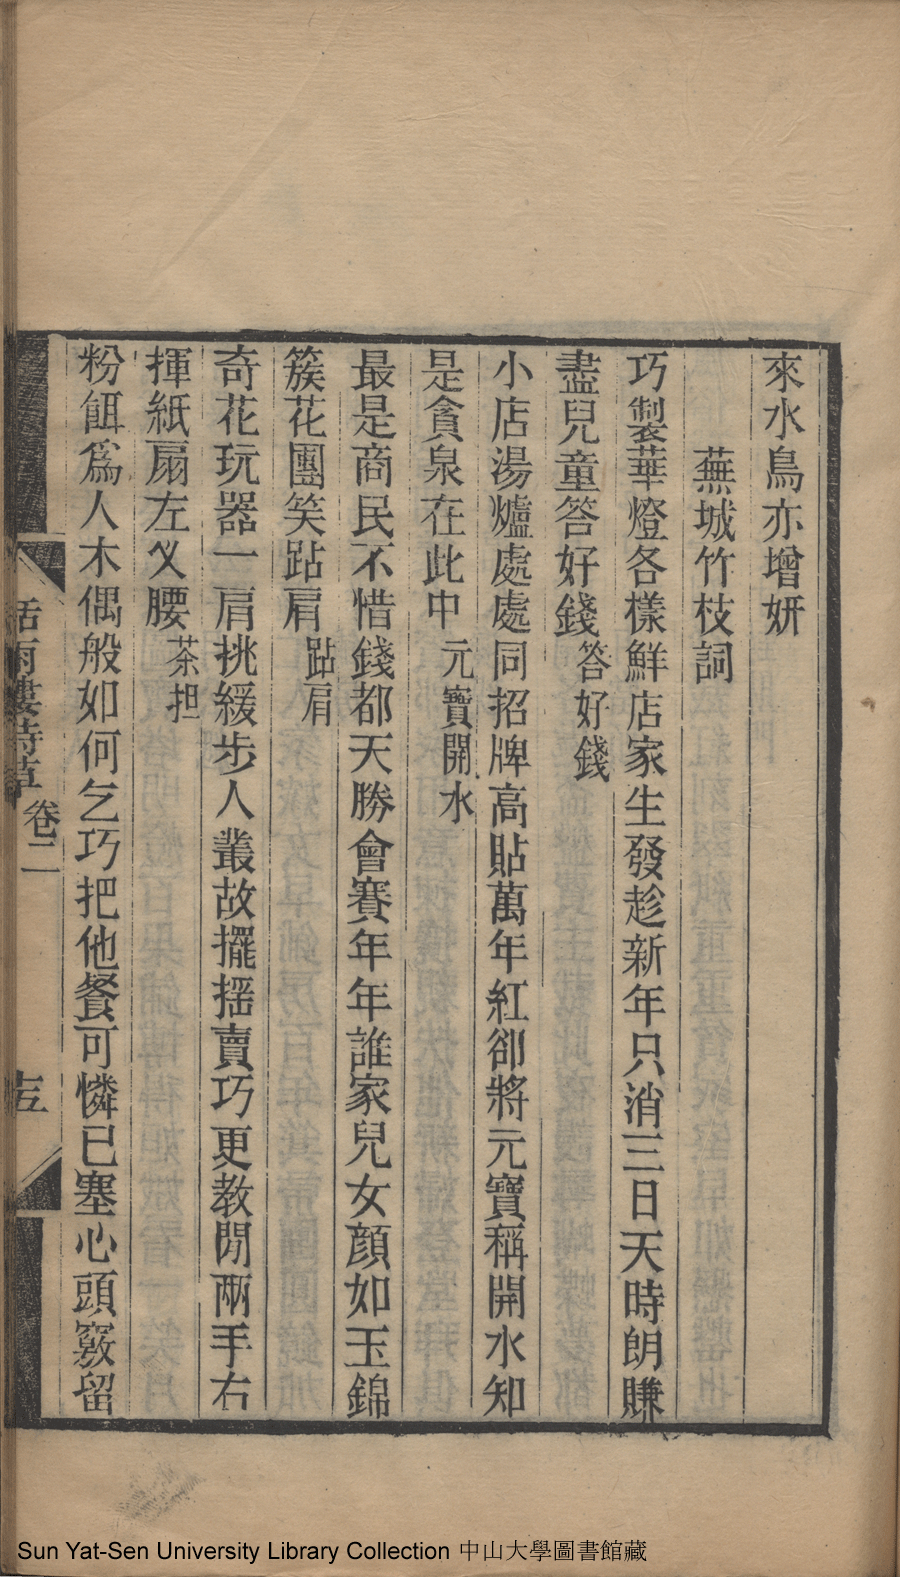 來水鳥亦增妍
蕪城竹枝詞
巧製華燈各樣鮮店家生發趁新年只消三日天時朗賺
盡兒童答好錢 答好錢
小店湯爐處處同招牌高貼萬年紅卻將元寶稱開水知
是貪泉在此中 元寶開水
最是商民不惜錢都天勝會賽年年誰家兒女顔如玉錦
簇花團笑跕肩 跕肩
奇花玩器一肩挑緩步人叢故擺摇賣巧更教閒兩手右
揮紙扇左乂腰 茶担
粉餌爲人木偶般如何乞巧把他餐可憐已塞心頭竅留
雨樓詩草 卷二
十五
Sun Yat-Sen University Library Collection 中山大學圖書館藏